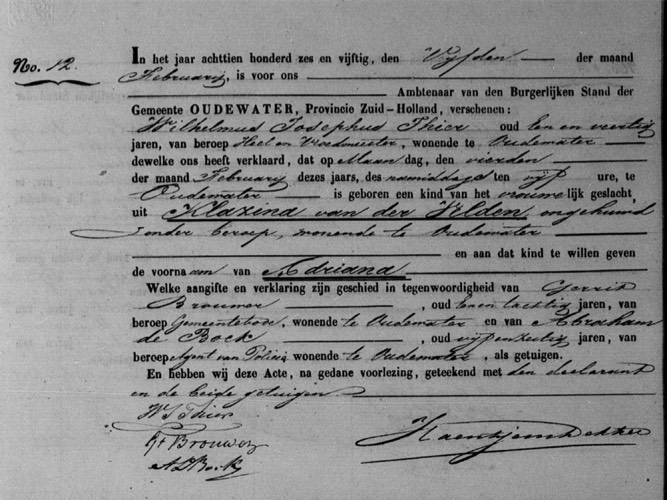 No. 12.
In het jaar achttien honderd zes en vijftig, den Vyfden der maand
Februarij, is voor ons
Ambtenaar van den Burgerlijken Stand der
Gemeente OUDEWATER, Provincie Zuid-Holland, verschenen:
Wilhelmus Josephus Thier oud Een en veertig
jaren, van beroep Heel en Vroedmeester, wonende te Oudewater
dewelke ons heeft verklaard, dat op Maan dag, den vierden
der maand Februarij dezes jaars, des namiddags ten vyf ure, te
Oudewater is geboren een kind van het vrouwe lijk geslacht,
uit Klazina van der Velden, ongehuwd
zonder beroep, wonende te Oudewater
en aan dat kind te willen geven
de voorna am van Adriana
Welke aangifte en verklaring zijn geschied in tegenwoordigheid van Gerrit
Brouwer, oud Een en tachtig jaren, van
beroep Gemeentebode, wonende te Oudewater en van Abraham
de Bock, oud jaren, van
beroep Agent van Policie wonende te Oudewater, als getuigen.
En hebben wij deze Acte, na gedane voorlezing, geteekend met den declarant
en de beide getuigen
W J Thier
Brouwer
A D Bock